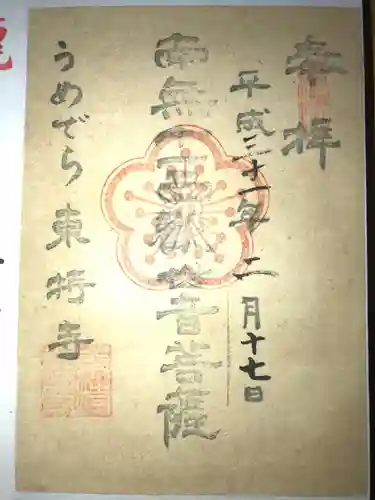 奉拝
平成三十一年二月十七日
南無十一面観世音菩薩
うめでら東特寺